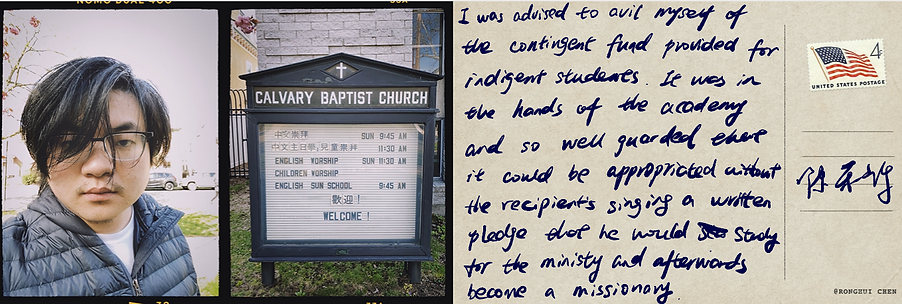 NOMO DUAL 400
CALVARY BAPTIST CHURCH
中文崇拜 SUN 9:45 AM
中文主日學,兒童崇拜 11:30 AM
ENGLISH WORSHIP SUN 11:30 AM
CHILDREN WORSHIP
ENGLISH SUN SCHOOL 9:45 AM
歡迎!
WELCOME !
I was advised to avil myself of
the contingent fund provided for
indigent studentes. It was in
the hands of the academy
and so well guarded there
it could be appropricted without
the recipients singing a written
pledge that he would Study
for the ministy and afterwards
become a missionary.
4¢
UNITED STATES POSTAGE
@RONGHUI CHEN